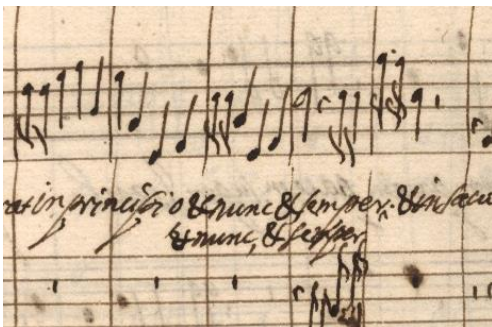 rat in principio & nunc & semper. & in sæcu
& nunc, & semper